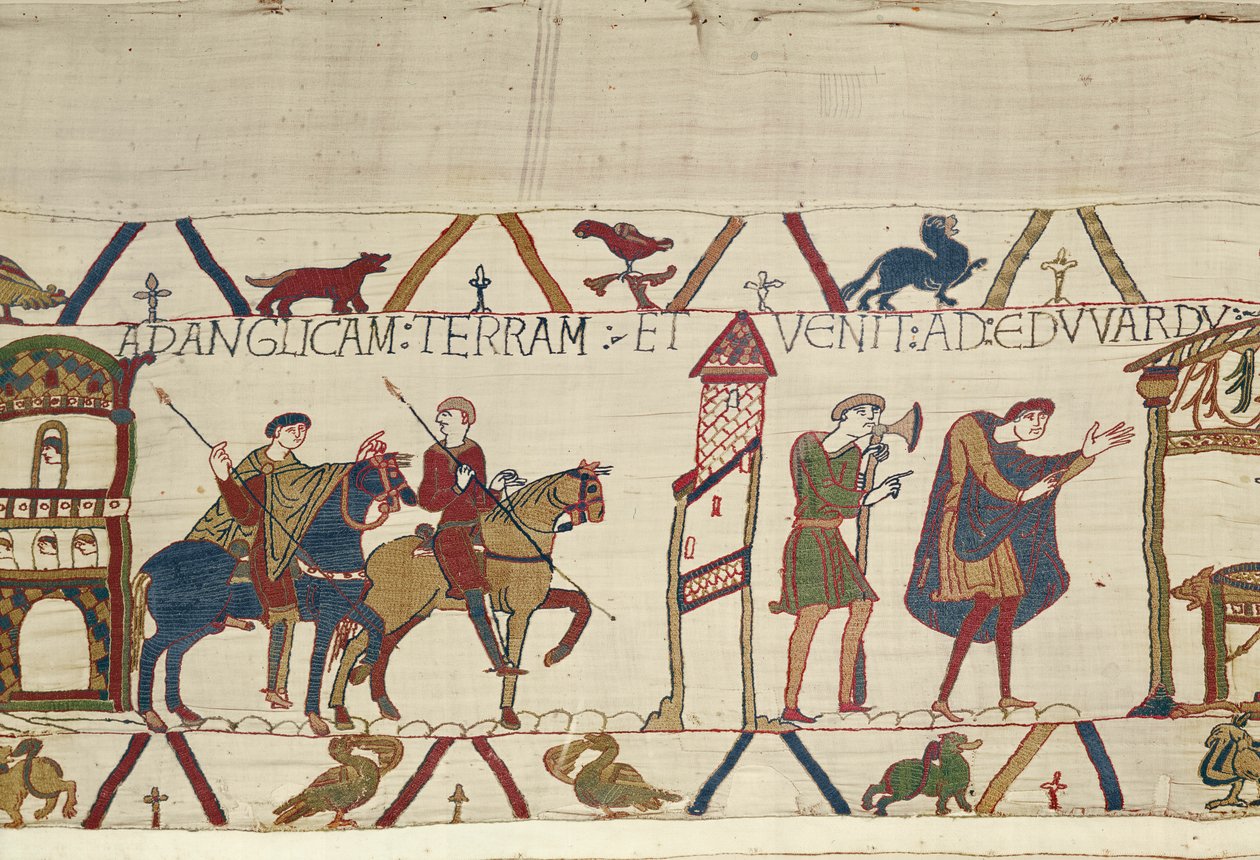 ADANGLICAM : TERRAM :- ET VENIT : AD : EDVVARDV :-